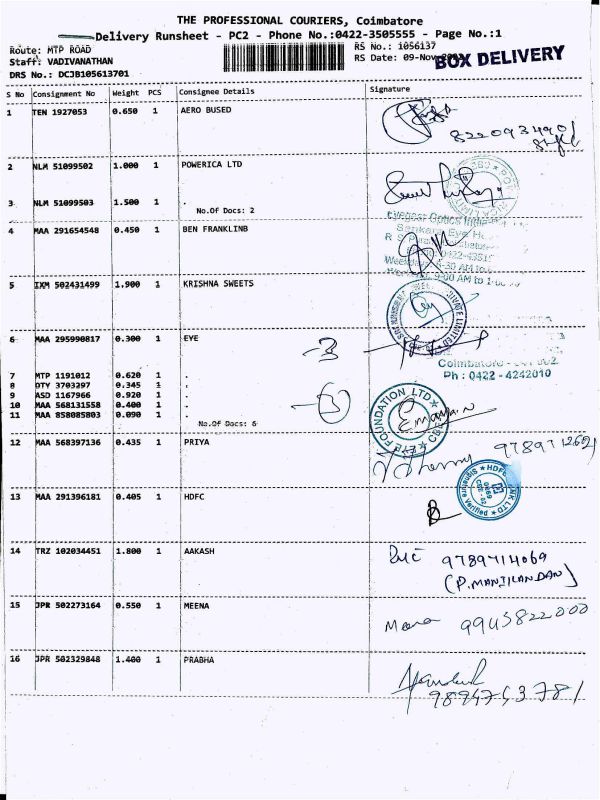 THE PROFESSIONAL COURIERS, Coimbatore
Delivery Runsheet - PC2 - Phone No.:0422-3505555 - Page No.:1
Route: MTP ROAD
RS No.: 1056137
Staff: VADIVANATHAN
RS Date: 09-Nov
BOX DELIVERY
DRS No.: DCJB105613701
S No Consignment No Weight PCS Consignee Details Signature
1 TEN 1927053 0.650 1 AERO BUSED
8220934901
2 NLM 51099502 1.000 1 POWERICA LTD
3 NLM 51099503 1.500 1 .
No.Of Docs: 2
4 MAA 291654548 0.450 1 BEN FRANKLINB
Eyegost Optics India
Sankara Eye
0422-4351
9-00 AM to 1-00
5 IXM 502431499 1.900 1 KRISHNA SWEETS
PRIVATE LIMITED
6 MAA 295990817 0.300 1 EYE
-3
Coimbatore
Ph : 0422 - 4242010
7 MTP 1191012 0.620 1 .
8 OTY 3703297 0.345 1 .
9 ASD 1167966 0.920 1 .
10 MAA 568131558 0.400 1 .
11 MAA 858085803 0.090 1 .
No.Of Docs: 6
FOUNDATION LTD
12 MAA 568397136 0.435 1 PRIYA
9789712621
13 MAA 291396181 0.405 1 HDFC
HDFC BANK LTD
Signature Verified
14 TRZ 102034451 1.800 1 AAKASH
9789714069
(P.MANJILANDAN)
15 JPR 502273164 0.550 1 MEENA
Meena 9943822000
16 JPR 502329848 1.400 1 PRABHA
9894743781